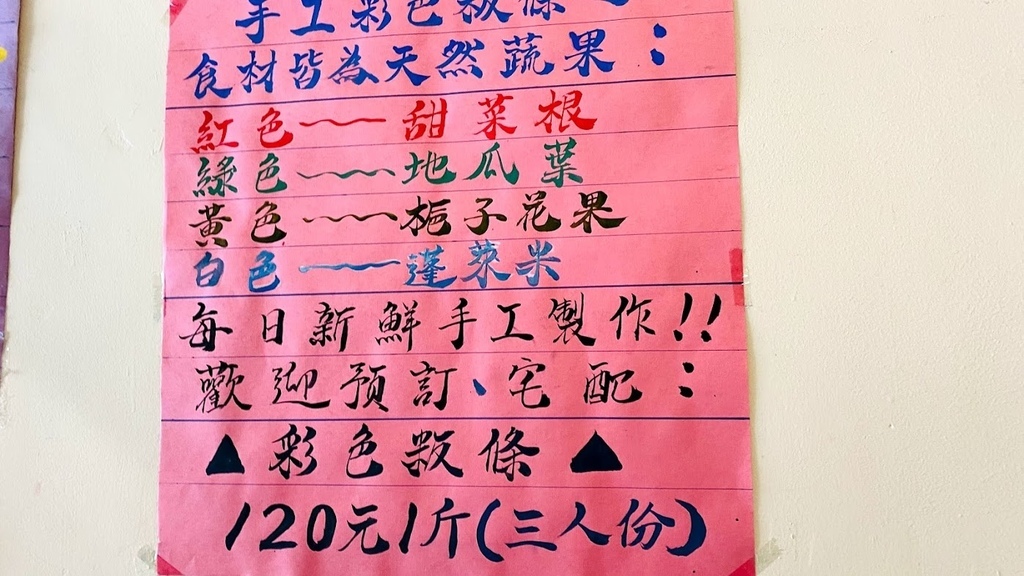 手工彩色粄條
食材皆為天然蔬果：
紅色——甜菜根
綠色——地瓜葉
黃色——梔子花果
白色——蓬萊米
每日新鮮手工製作!!
歡迎預訂、宅配：
▲彩色粄條▲
120元1斤(三人份)